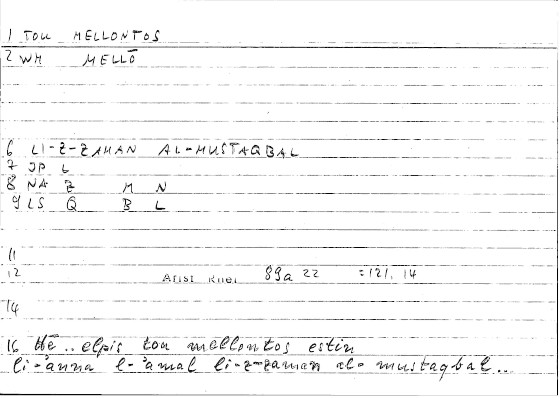 1 TOU MELLONTOS
2 WH MELLŌ
6 LI-Z-ZAMAN AL-MUSTAQBAL
7 JP L
8 NA Z M N
9 LS Q B L
11
12 Arist Rhet 89a 22 =121, 14
14
16 Hē .. elpis tou mellontos estin
li-'anna l-'amal li-z-zaman al-mustaqbal ..